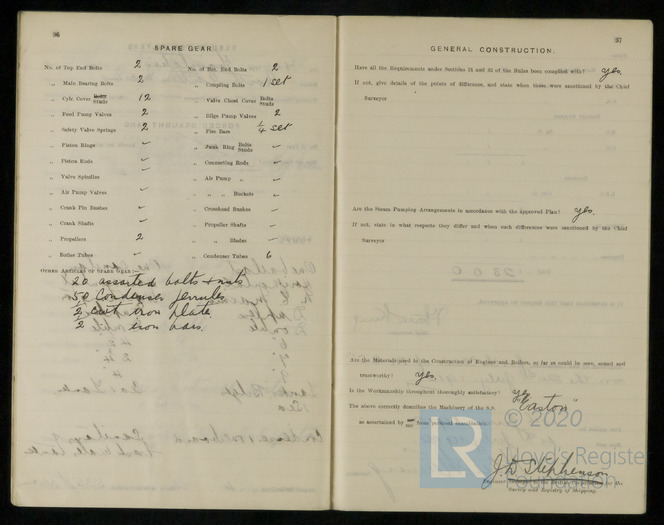 96
SPARE GEAR.
No. of Top End Bolts 2 No. of Bot. End Bolts 2
„ Main Bearing Bolts 2 „ Coupling Bolts 1 set
„ Cylr. Cover Studs 12 „ Valve Chest Cover Bolts Studs –
„ Feed Pump Valves 2 „ Bilge Pump Valves 2
„ Safety Valve Springs 2 „ Fire Bars ¼ set
„ Piston Rings – „ Junk Ring Bolts Studs –
„ Piston Rods – „ Connecting Rods –
„ Valve Spindles – „ Air Pump „ –
„ Air Pump Valves – „ „ „ Buckets –
„ Crank Pin Bushes – „ Crosshead Bushes –
„ Crank Shafts – „ Propeller Shafts –
„ Propellers 2 „ „ Blades –
„ Boiler Tubes – „ Condenser Tubes 6
OTHER ARTICLES OF SPARE GEAR:—
20 assorted bolts & nuts
50 Condenser ferrules
½ cwt iron plate
2 iron bars.
97
GENERAL CONSTRUCTION.
Have all the Requirements under Sections 21 and 22 of the Rules been complied with? Yes.
If not, give details of the points of difference, and state when these were sanctioned by the Chief
Surveyor
Are the Steam Pumping Arrangements in accordance with the Approved Plan? Yes.
If not, state in what respects they differ and when such differences were sanctioned by the Chief
Surveyor
Are the Materials used in the Construction of Engines and Boilers, so far as could be seen, sound and
trustworthy? Yes.
Is the Workmanship throughout thoroughly satisfactory? Yes
The above correctly describes the Machinery of the S.S. "Easton"
as ascertained by from personal examination
J. D. Stephenson
Survey and Registry of Shipping.
© 2020
LR Lloyd's Register
Foundation